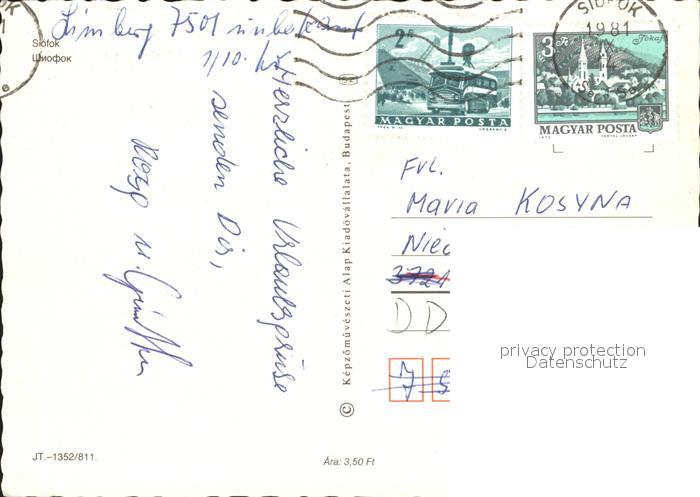 7501 unbekannt
1/10.
Siófok
Шиофок
Herzliche Urlaubsgrüsse
senden Dir,
u. Günther
JT.–1352/811.
Ára: 3,50 Ft
© Képzőművészeti Alap Kiadóvállalata, Budapest
2 Ft
MAGYAR POSTA
3 Ft Tokaj
MAGYAR POSTA
SIÓFOK
1981
Frl.
Maria KOSYNA
Nied
3721
DD
7 5
privacy protection
Datenschutz